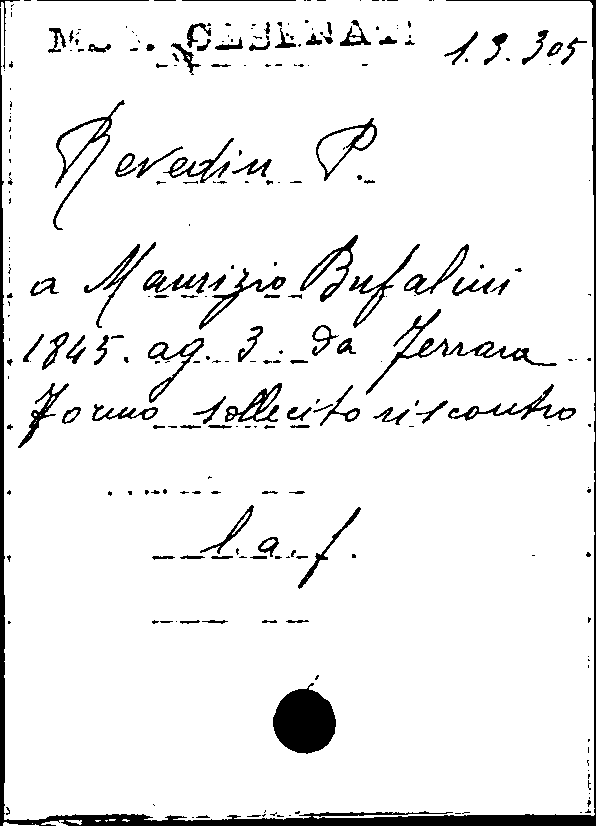 MSS. CESENATI 1.3.305
Revedin P.
a Maurizio Bufalini
1845. ag. 3. da Ferrara
Formo sollecito riscontro
l.a.f.